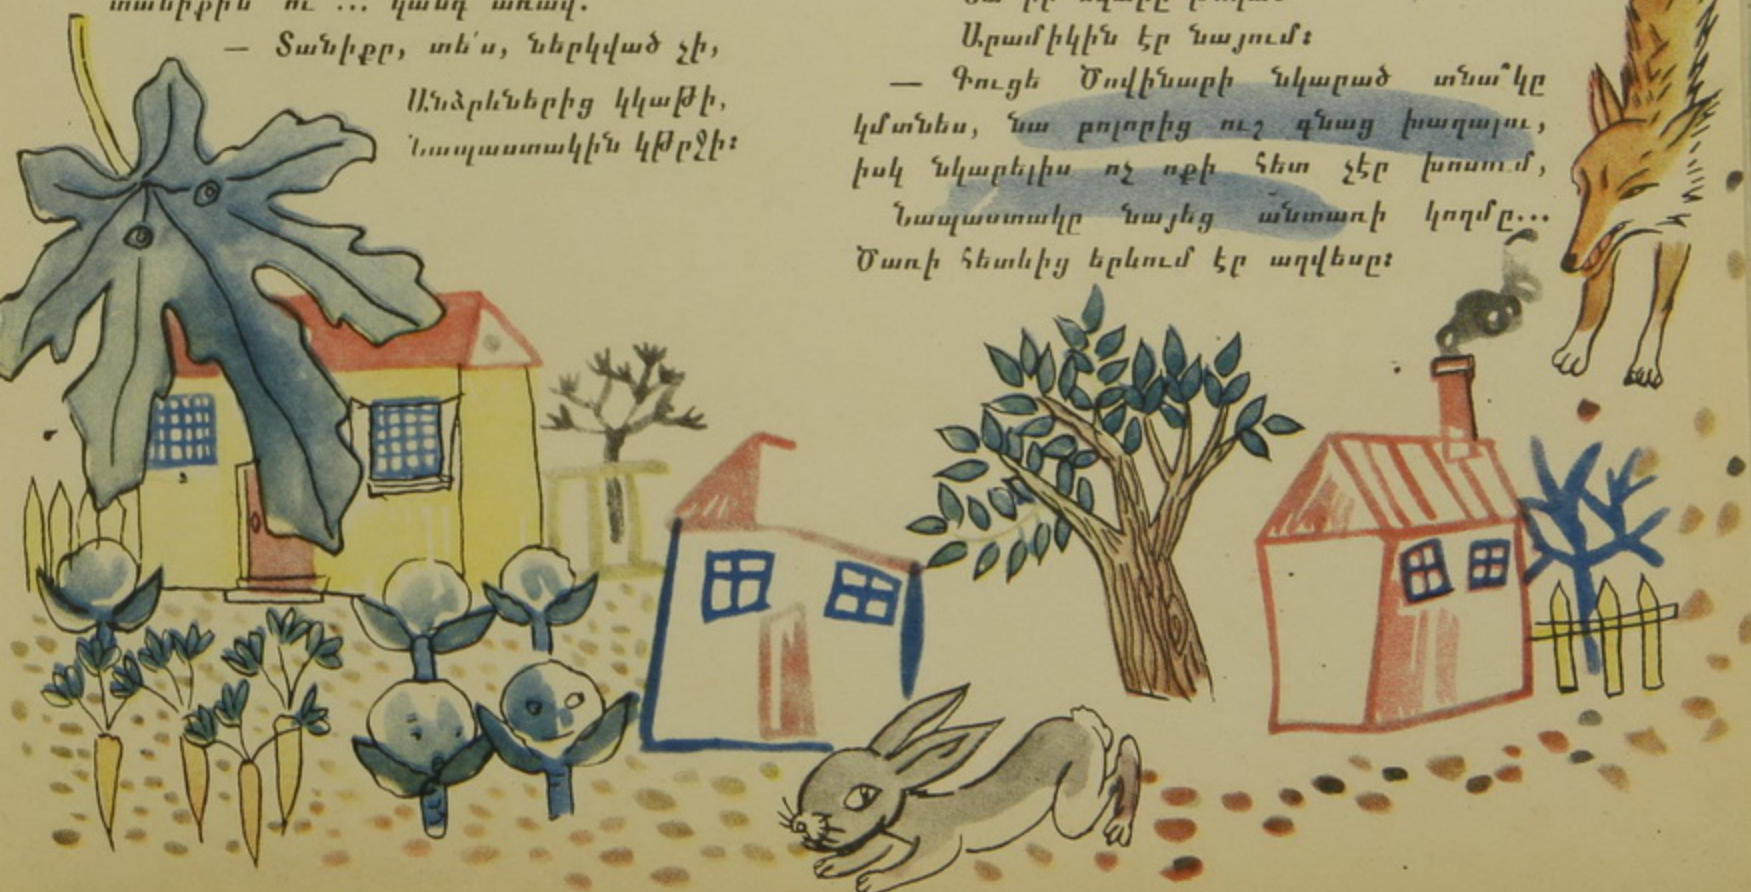 տանիքին ու ... կանգ առավ.
— Տանիքը, տե՛ս, ներկված չի,
Անձրևներից կկաթի,
Նապաստակին կթրջի։
Արամիկին էր նայում։
— Գուցե Ծովինարի նկարած տնա՞կը
կմտնես, նա բոլորից ուշ գնաց խաղալու,
իսկ նկարելիս ոչ ոքի հետ չէր խոսում,
Նապաստակը նայեց անտառի կողմը...
Ծառի հետևից երևում էր աղվեսը։